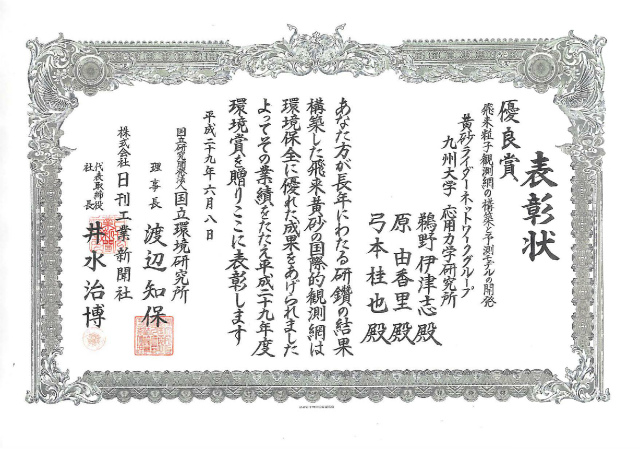 表彰状
優良賞
飛来粒子観測網の構築と予測モデルの開発
黄砂ライダーネットワークグループ
九州大学 応用力学研究所
鵜野伊津志殿
原由香里殿
弓本桂也殿
あなた方が長年にわたる研鑽の結果
構築した飛来黄砂の国際的観測網は
環境保全に優れた成果をあげられました
よってその業績をたたえ平成二十九年度
環境賞を贈りここに表彰します
平成二十九年六月八日
国立研究開発法人国立環境研究所
理事長 渡辺知保
株式会社日刊工業新聞社
代表取締役社長 井水治博